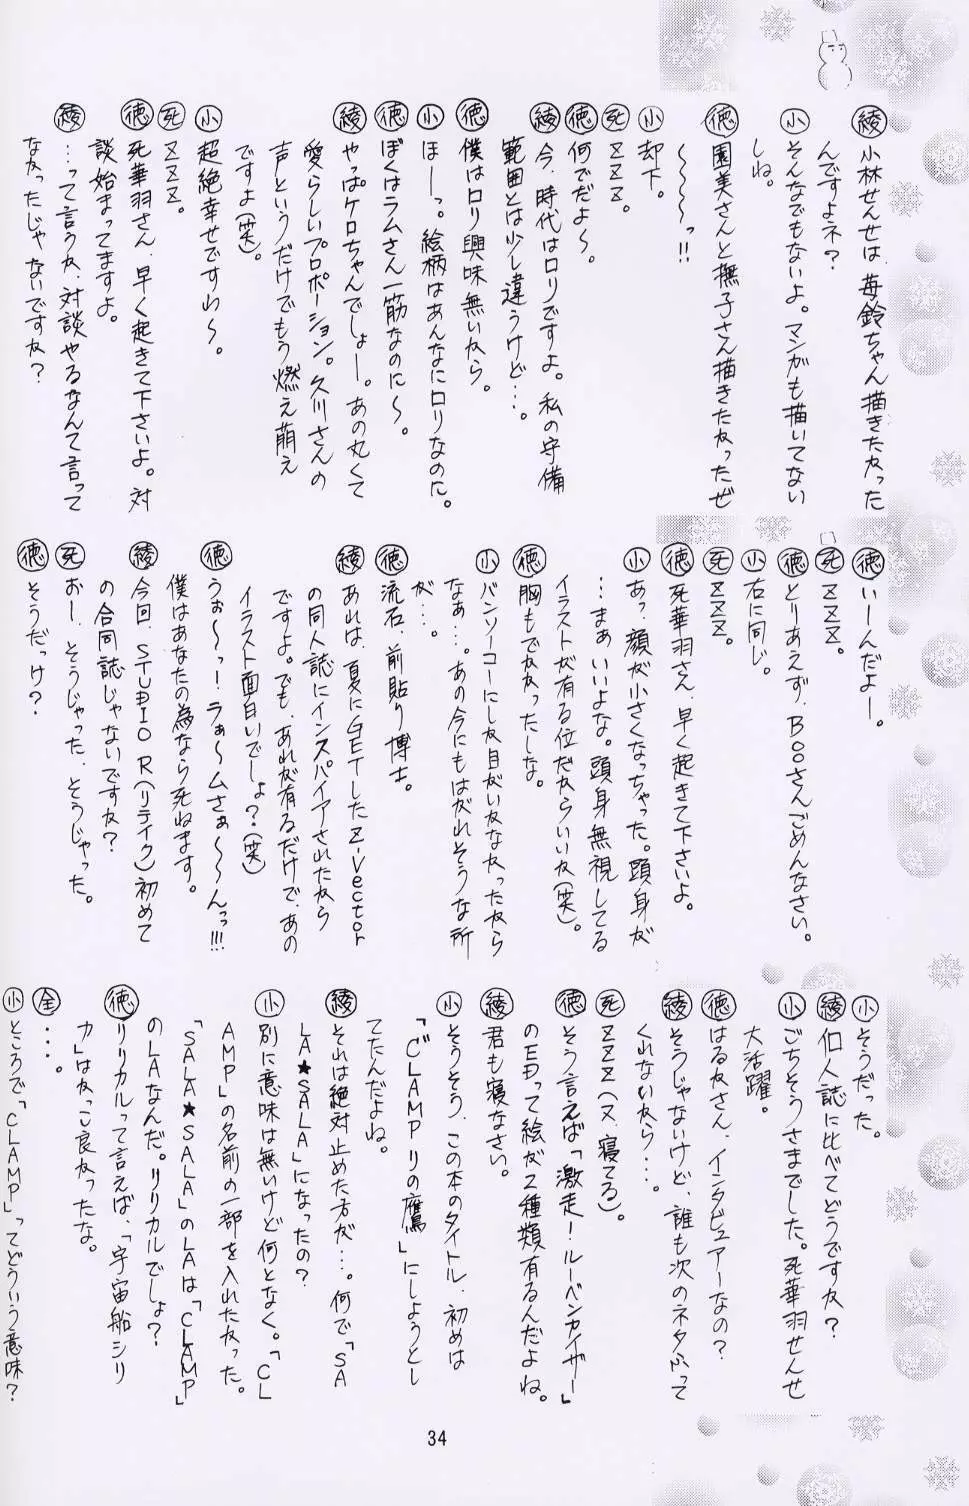 綾 小林せんせは、苺鈴ちゃん描きたかった
んですよネ？
小 そんなでもないよ。マンガも描いてない
しね。
徳 園美さんと撫子さん描きたかったぜ
〜〜〜〜っ!!
小 却下。
死 ZZZ。
徳 何でだよ〜。
綾 今、時代はロリですよ。私の守備
範囲とは少し違うけど…。
徳 僕はロリ興味無いから。
小 ほーっ。絵柄はあんなにロリなのに。
徳 ぼくはラムさん一筋なのに〜。
綾 やっぱケロちゃんでしょー。あの丸くて
愛らしいプロポーション。久川さんの
声というだけでもう燃え萌え
ですよ（笑）。
小 超絶幸せですわ〜。
死 ZZZ。
徳 死華羽さん、早く起きて下さいよ。対
談始まってますよ。
綾 …って言うか、対談やるなんて言って
なかったじゃないですか？
徳 いーんだよー。
死 ZZZ。
徳 とりあえず、BOOさんごめんなさい。
小 右に同じ。
死 ZZZ。
徳 死華羽さん、早く起きて下さいよ。
小 あっ、顔が小さくなっちゃった。頭身が
…まぁいいよな。頭身無視してる
イラストが有る位だからいいか（笑）。
徳 胸もでかかったしな。
小 バンソーコーにしか目がいかなかったから
なぁ…。あの今にもはがれそうな所
が…。
徳 流石、前貼り博士。
綾 あれは、夏にGETしたZ-Vector
の同人誌にインスパイアされたから
ですよ。でも、あれが有るだけで、あの
イラスト面白いでしょ？（笑）
徳 うぉ〜っ！ラぁ〜ムさぁ〜〜〜んっ!!!
僕はあなたの為なら死ねます。
綾 今回、STUBIO R（リテイク）初めて
の合同誌じゃないですか？
死 おー、そうじゃった、そうじゃった。
徳 そうだっけ？
小 そうだった。
綾 個人誌に比べてどうですか？
小 ごちそうさまでした。死華羽せんせ
大活躍。
徳 はるかさん、インタビュアーなの？
綾 そうじゃないけど、誰も次のネタふって
くれないから…。
死 ZZZ（又、寝てる）。
徳 そう言えば「激走！ルーベンカイザー」
のEDって絵が2種類有るんだよね。
綾 君も寝なさい。
小 そうそう、この本のタイトル、初めは
「CLAMPリの鷹」にしようとし
てたんだよね。
綾 それは絶対止めた方が…。何で「SA
LA★SALA」になったの？
小 別に意味は無いけど何となく。「CL
AMP」の名前の一部を入れたかった。
「SALA★SALA」のLAは「CLAMP」
のLAなんだ。リリカルでしょ？
徳 リリカルって言えば、「宇宙船シリ
カ」はかっこ良かったな。
全 …。
小 ところで「CLAMP」ってどういう意味？
34